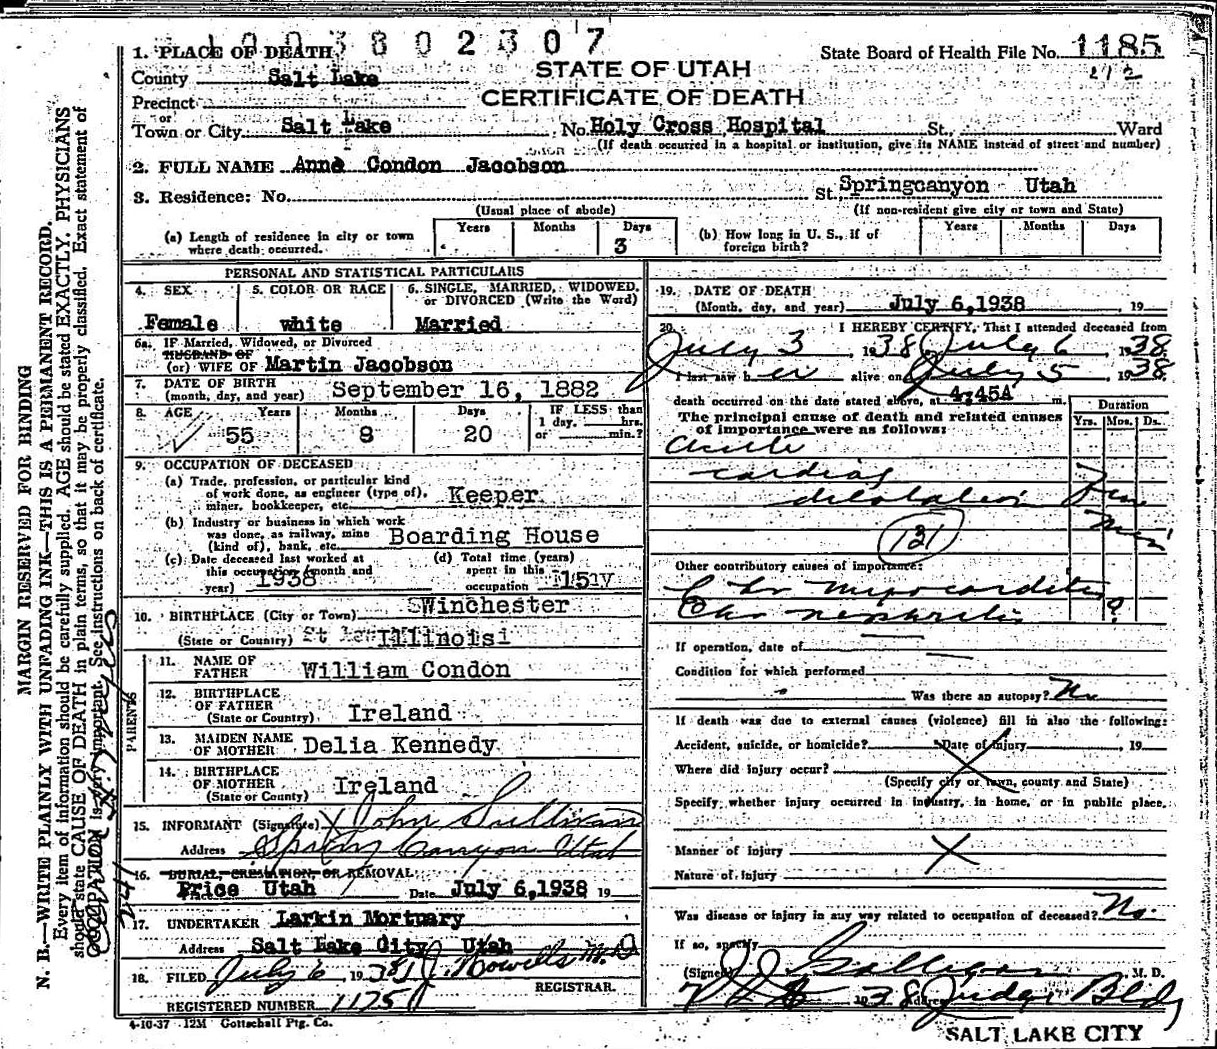 1003802307
1. PLACE OF DEATH
State Board of Health File No. 1185
212
County Salt Lake
STATE OF UTAH
Precinct
CERTIFICATE OF DEATH
or
Town or City Salt Lake No. Holy Cross Hospital St., Ward
(If death occurred in a hospital or institution, give its NAME instead of street and number)
2. FULL NAME Anne Condon Jacobson
3. Residence: No. St. Springcanyon Utah
(Usual place of abode) (If non-resident give city or town and State)
(a) Length of residence in city or town where death occurred. Years Months Days 3
(b) How long in U. S., if of foreign birth? Years Months Days
PERSONAL AND STATISTICAL PARTICULARS
4. SEX 5. COLOR OR RACE 6. SINGLE, MARRIED, WIDOWED, or DIVORCED (Write the Word)
Female white Married
6a. IF Married, Widowed, or Divorced
HUSBAND OF
(or) WIFE OF Martin Jacobson
7. DATE OF BIRTH
(month, day, and year) September 16, 1882
8. AGE Years Months Days IF LESS than
1 day, hrs.
or min.?
55 8 20
9. OCCUPATION OF DECEASED
(a) Trade, profession, or particular kind
of work done, as engineer (type of),
miner, bookkeeper, etc. Keeper
(b) Industry or business in which work
was done, as railway, mine
(kind of), bank, etc. Boarding House
(c) Date deceased last worked at
this occupation (month and
year) 1938
(d) Total time (years)
spent in this
occupation 15
10. BIRTHPLACE (City or Town) Winchester
(State or Country) Illinoisi
PARENTS
11. NAME OF
FATHER William Condon
12. BIRTHPLACE
OF FATHER
(State or Country) Ireland
13. MAIDEN NAME
OF MOTHER Delia Kennedy
14. BIRTHPLACE
OF MOTHER
(State or Country) Ireland
15. INFORMANT (Signature) X John Sullivan
Address Spring Canyon Utah
16. BURIAL, CREMATION, OR REMOVAL
Price Utah Date July 6, 1938 19
17. UNDERTAKER Larkin Mortuary
Address Salt Lake City Utah
18. FILED July 6 1938 Howells M.D
REGISTRAR.
REGISTERED NUMBER 1175
4-10-37 12M Gottschall Ptg. Co.
19. DATE OF DEATH
(Month, day, and year) July 6, 1938 , 19
20. I HEREBY CERTIFY, That I attended deceased from
July 3, 1938 July 6, 1938
I last saw her alive on July 5, 1938
death occurred on the date stated above, at 4:45A m.
The principal cause of death and related causes
of importance were as follows:
Duration
Yrs. Mos. Ds.
Acute
cardiac
dilatation Few
Min
131
Other contributory causes of importance:
Chr myocarditis
Chr nephritis ?
If operation, date of
Condition for which performed
Was there an autopsy? No
If death was due to external causes (violence) fill in also the following:
Accident, suicide, or homicide? Date of injury , 19
Where did injury occur?
(Specify city or town, county and State)
Specify whether injury occurred in industry, in home, or in public place.
Manner of injury
Nature of injury
Was disease or injury in any way related to occupation of deceased? No.
If so, specify
(Signed) Galligan M. D.
1938 Address Judge Bldg
SALT LAKE CITY
MARGIN RESERVED FOR BINDING
N. B.—WRITE PLAINLY WITH UNFADING INK—THIS IS A PERMANENT RECORD.
Every item of information should be carefully supplied. AGE should be stated EXACTLY. PHYSICIANS
should state CAUSE OF DEATH in plain terms, so that it may be properly classified. Exact statement of
OCCUPATION is very important. See instructions on back of certificate.